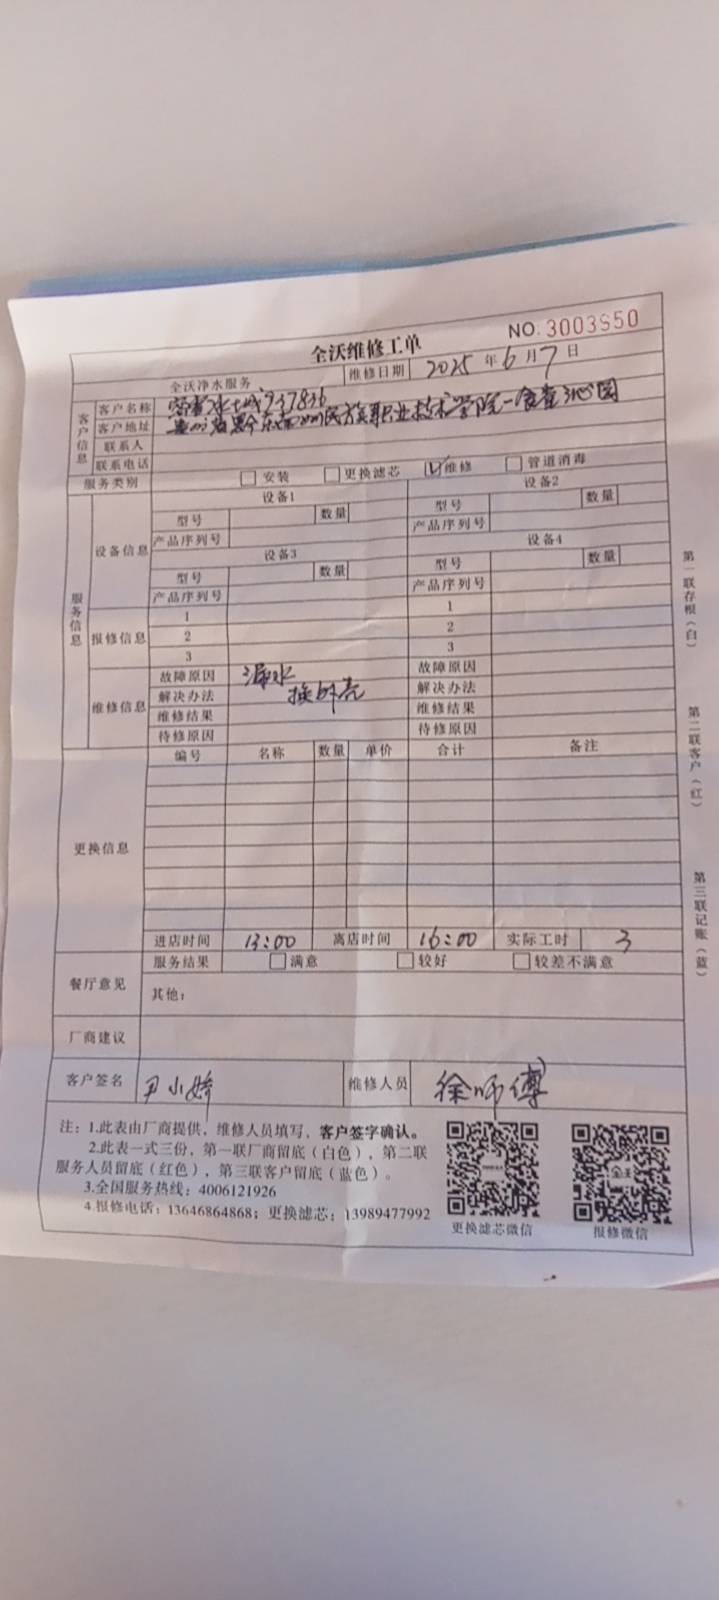 全沃维修工单
NO. 3003950
全沃净水服务
维修日期 2025 年 6 月 7 日
客户信息
客户名称 蜜雪冰城937836
客户地址 贵州省黔东南州民族职业技术学院一食堂沁园
联系人
联系电话
服务类别 安装 更换滤芯 维修 管道消毒
服务信息
设备信息
设备1 设备2
型号 数量 型号 数量
产品序列号 产品序列号
设备3 设备4
型号 数量 型号 数量
产品序列号 产品序列号
报修信息
1 1
2 2
3 3
维修信息
故障原因 漏水 故障原因
解决办法 换外壳 解决办法
维修结果 维修结果
待修原因 待修原因
更换信息
编号 名称 数量 单价 合计 备注
进店时间 13:00 离店时间 16:00 实际工时 3
餐厅意见
服务结果 满意 较好 较差不满意
其他：
厂商建议
客户签名 尹小娇 维修人员 徐师傅
注：1.此表由厂商提供，维修人员填写，客户签字确认。
2.此表一式三份，第一联厂商留底（白色），第二联
服务人员留底（红色），第三联客户留底（蓝色）。
3.全国服务热线：4006121926
4.报修电话：13646864868；更换滤芯：13989477992
更换滤芯微信 报修微信
第一联存根（白）
第二联客户（红）
第三联记账（蓝）